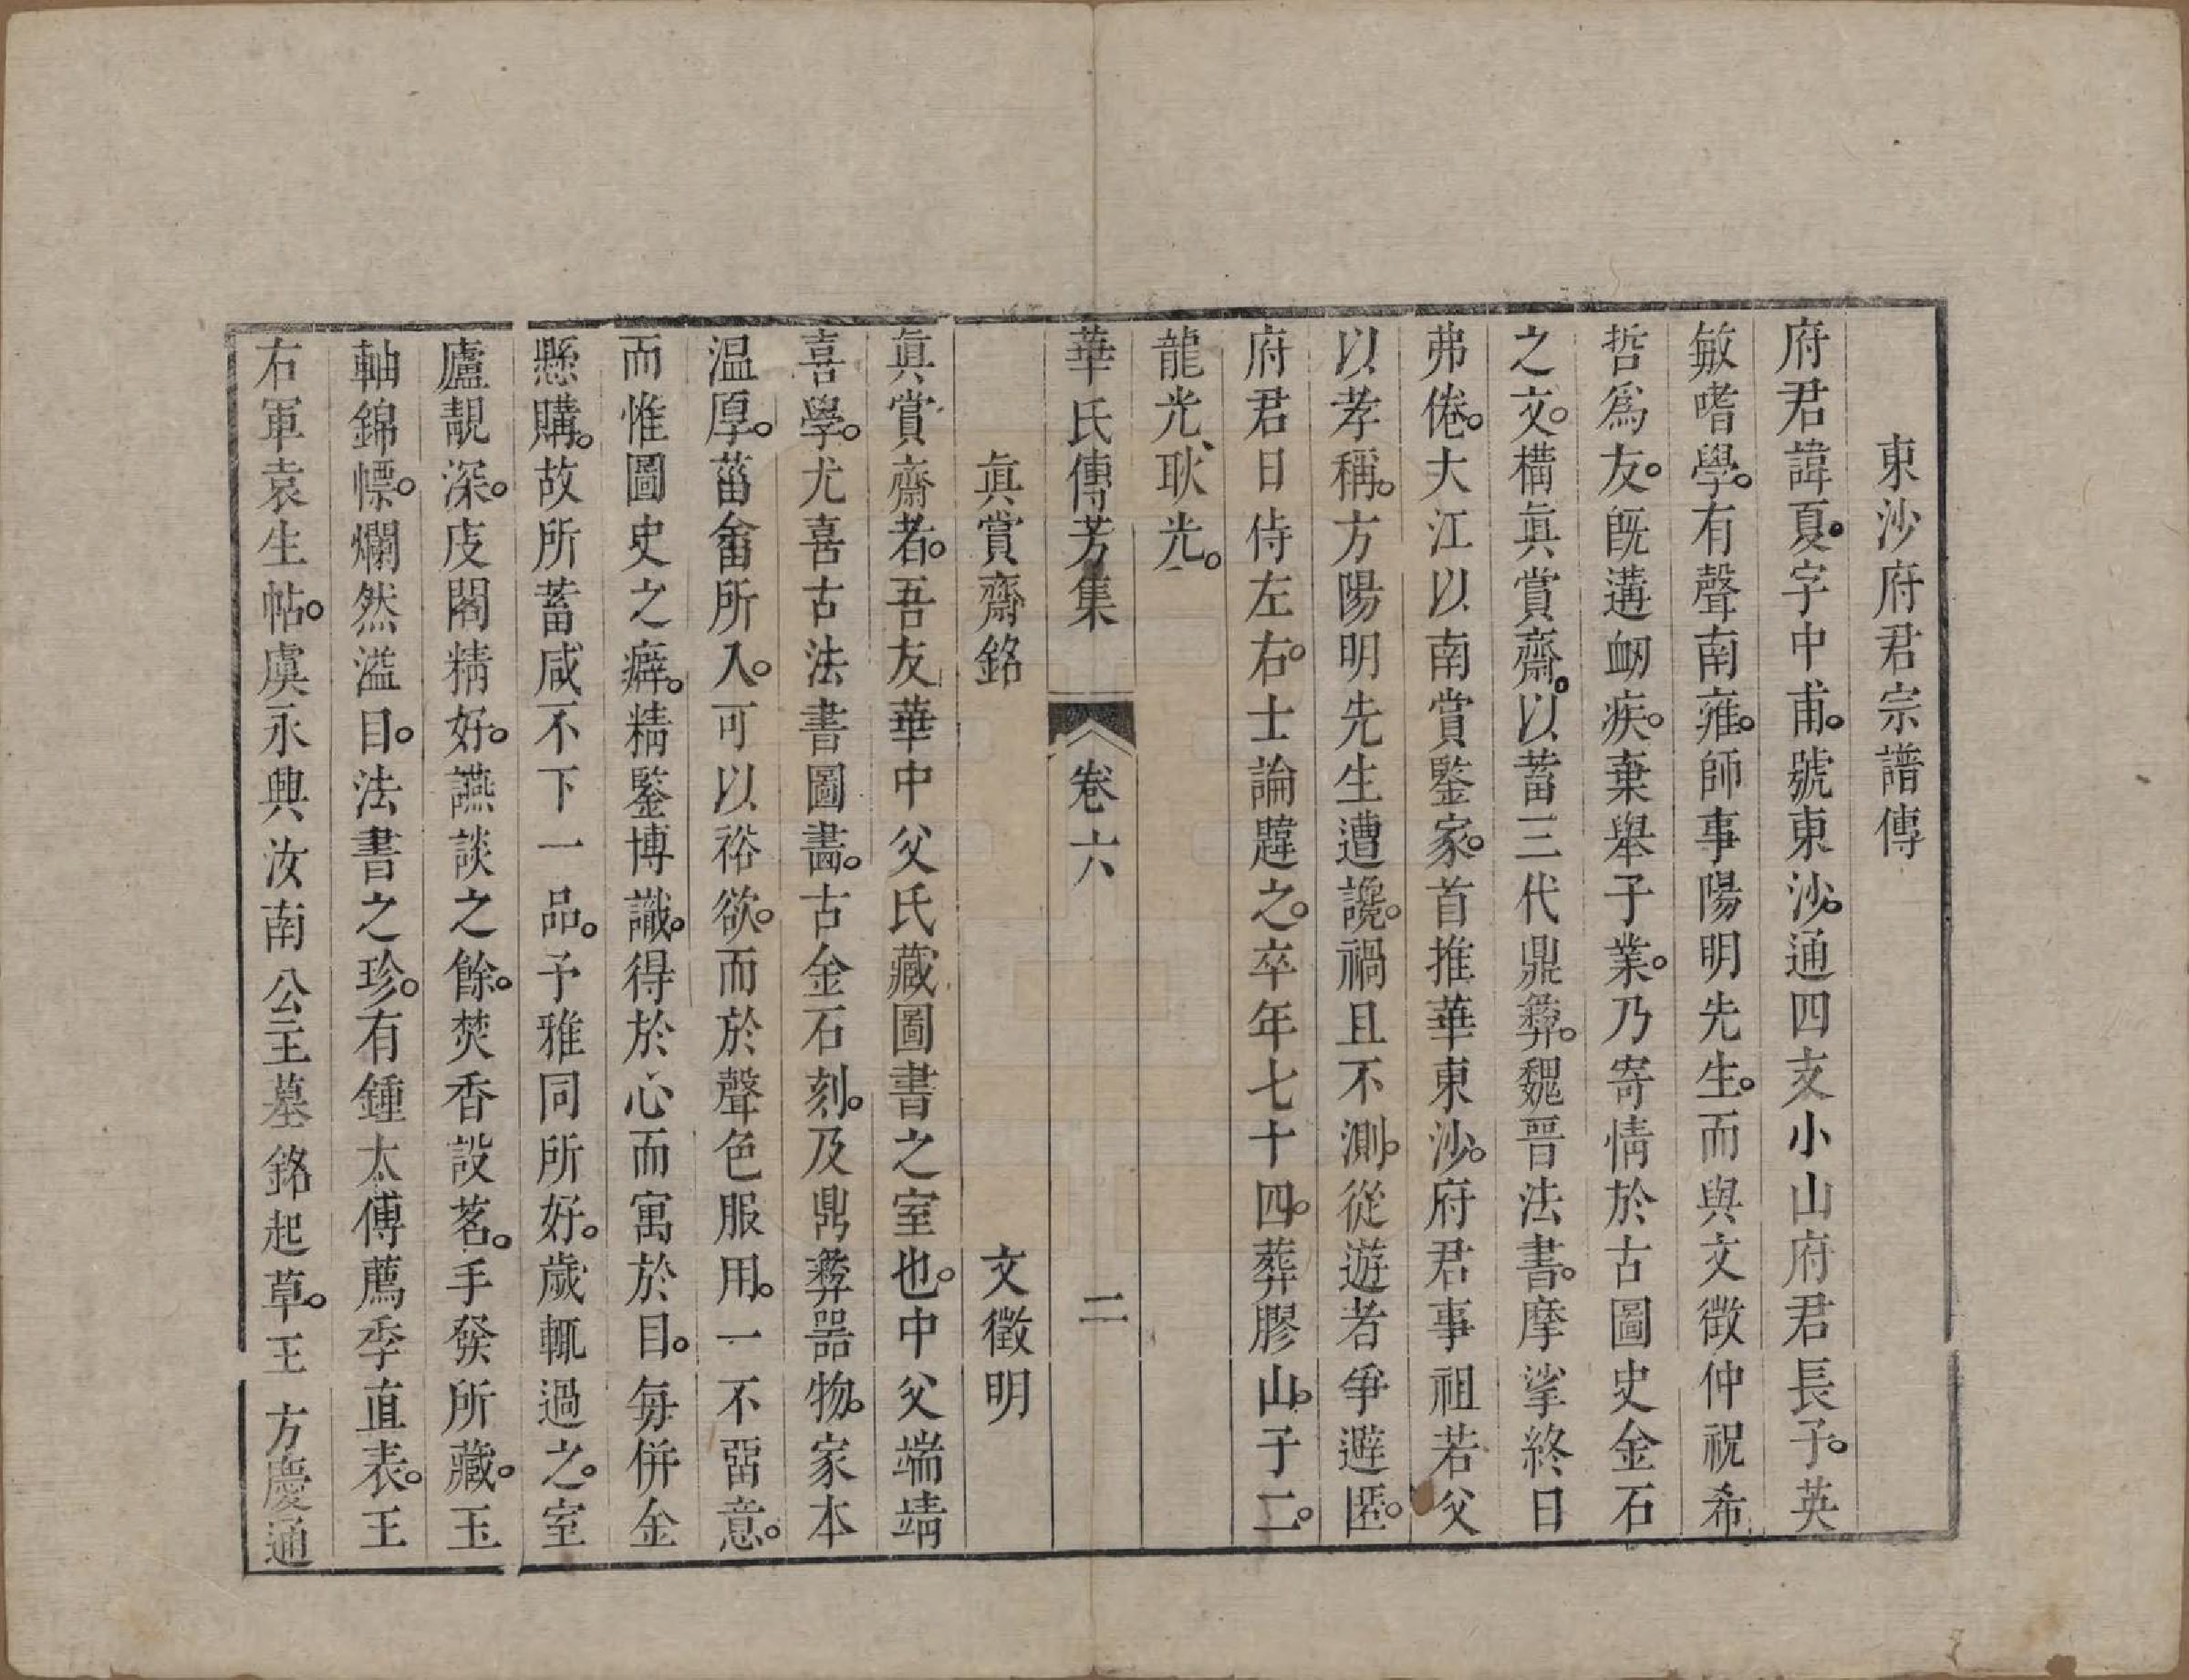 東沙府君宗譜傳
府君諱夏。字中甫。號東沙。通四支小山府君長子。英
敏嗜學。有聲南雍。師事陽明先生。而與文徵仲祝希
哲爲友。旣遘衂疾。棄舉子業。乃寄情於古圖史金石
之文。構眞賞齋。以蓄三代鼎彝。魏晋法書。摩挲終日
弗倦。大江以南賞鑒家。首推華東沙。府君事祖若父
以孝稱。方陽明先生遭讒。禍且不測。從遊者爭避匿。
府君日侍左右。士論韙之。卒年七十四。葬膠山。子二。
龍光、耿光。
華氏傳芳集
卷六
二
眞賞齋銘
文徵明
眞賞齋者。吾友華中父氏藏圖書之室也。中父端靖
喜學。尤喜古法書圖畵。古金石刻。及鼎彝器物。家本
温厚。菑畬所入。可以裕欲。而於聲色服用。一不畱意。
而惟圖史之癖。精鑒博識。得於心而寓於目。每併金
懸購。故所蓄咸不下一品。予雅同所好。歲輒過之。室
廬靚深。庋閣精好。讌談之餘。焚香設茗。手發所藏。玉
軸錦幖。爛然溢目。法書之珍。有鍾太傅薦季直表。王
右軍袁生帖。虞永興汝南公主墓銘起草。王方慶通